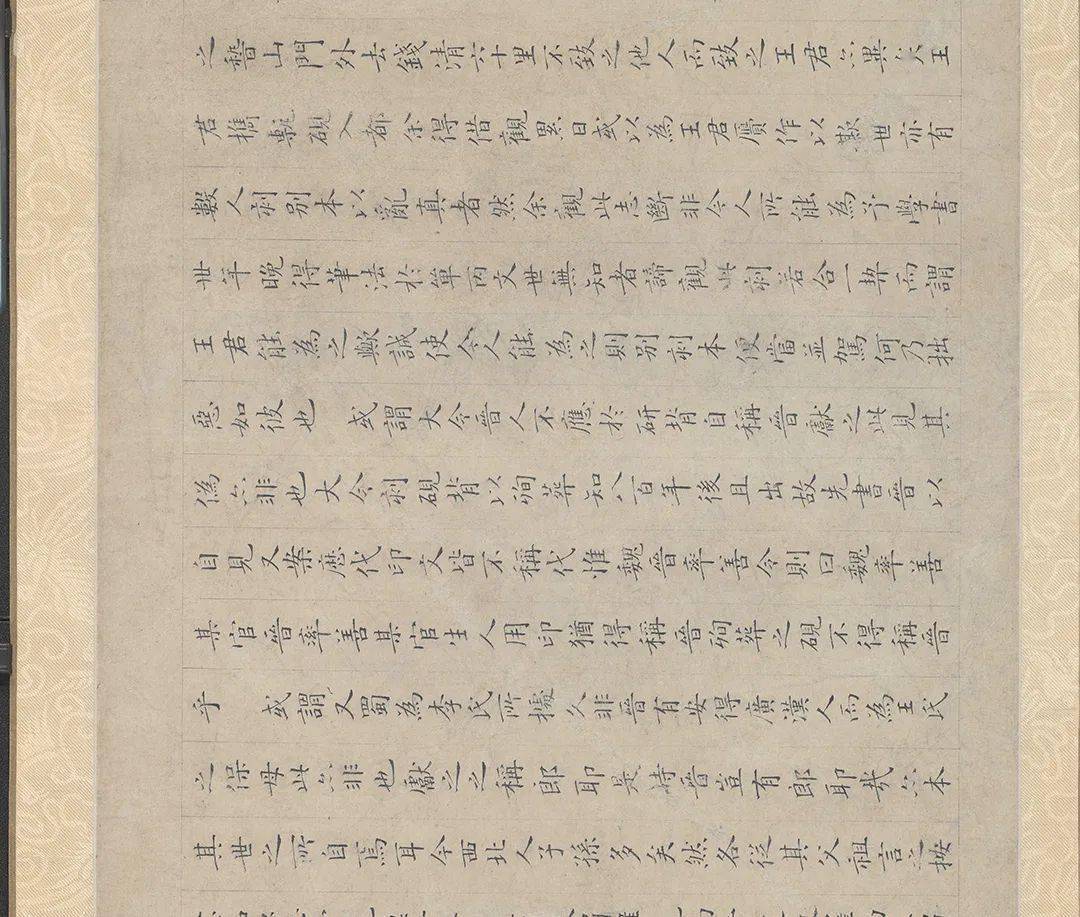 之稽山門外去錢清六十里不致之他人而致之王君亦異矣王
君攜甎硯入都余得借觀累日或以為王君贋作以欺世亦有
數人刻別本以亂真者然余觀此志斷非今人所能為予學書
丗年晚得筆法於單丙文世無知者諦觀此刻若合一契而謂
王君能為之歟誠使今人能為之則別刻本便當並駕何乃拙
惡如彼也 或謂大令晉人不應於研背自稱晉獻之此見其
偽亦非也大令刻硯背以殉葬知八百年後且出故先書晉以
自見又案歷代印文皆不稱代惟魏晉率善令則曰魏率善
某官晉率善某官生人用印猶得稱晉殉葬之硯不得稱晉
乎 或謂又蜀為李氏所據久非晉有安得廣漢人而為王氏
之保母此亦非也獻之之稱郎耶是時晉豈有郎耶哉亦本
其世之所自焉耳今西北人子孫多矣然各從其父祖言之按